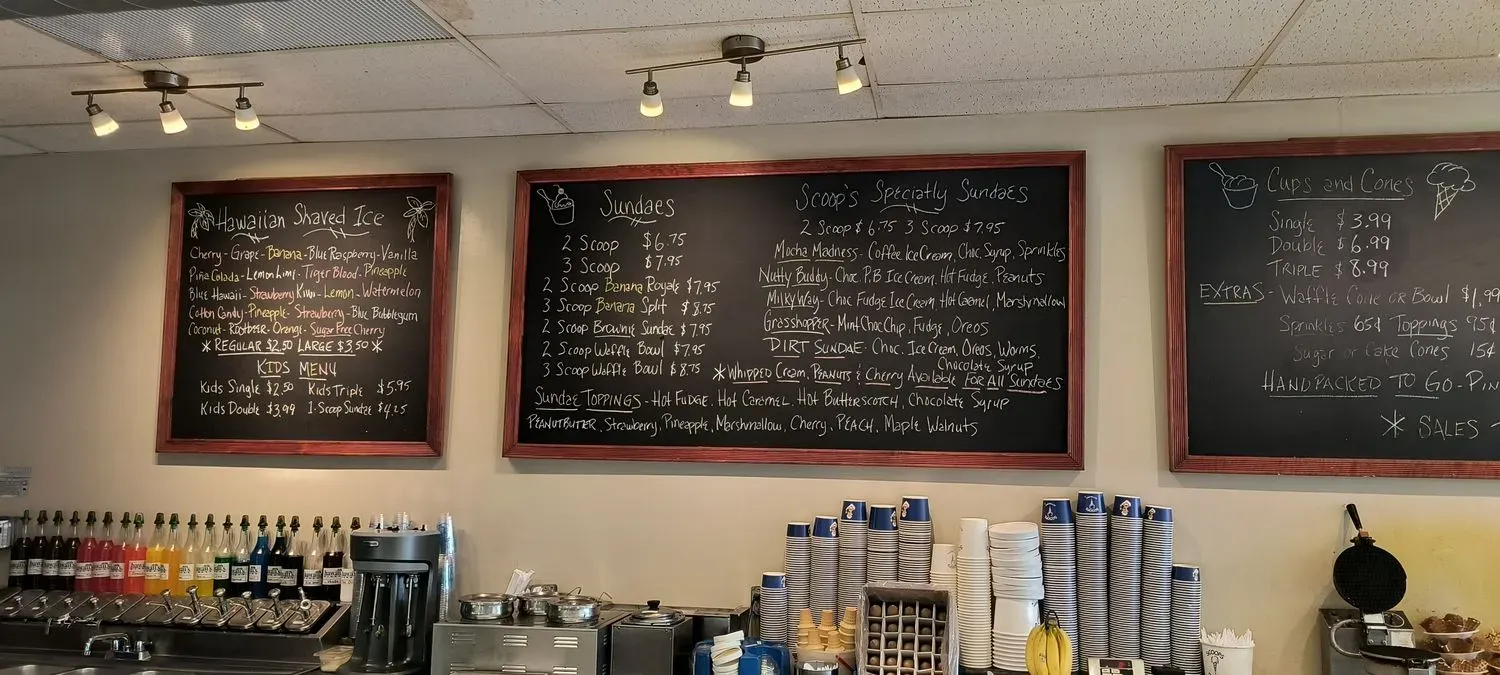 Hawaiian Shaved Ice
Cherry - Grape - Banana - Blue Raspberry - Vanilla
Piña Colada - Lemon Lime - Tiger Blood - Pineapple
Blue Hawaii - Strawberry Kiwi - Lemon - Watermelon
Cotton Candy - Pineapple - Strawberry - Blue Bubblegum
Coconut - Rootbeer - Orange - Sugar Free Cherry
* REGULAR $2.50 LARGE $3.50 *
KIDS MENU
Kids Single $2.50 Kids Triple $5.95
Kids Double $3.99 1-Scoop Sundae $4.25
Sundaes
2 Scoop $6.75
3 Scoop $7.95
2 Scoop Banana Royale $7.95
3 Scoop Banana Split $8.75
2 Scoop Brownie Sundae $7.95
2 Scoop Waffle Bowl $7.95
3 Scoop Waffle Bowl $8.75
Scoop's Specialty Sundaes
2 Scoop $6.75 3 Scoop $7.95
Mocha Madness - Coffee Ice Cream, Choc. Syrup, Sprinkles
Nutty Buddy - Choc. P.B. Ice Cream, Hot Fudge, Peanuts
Milky Way - Choc Fudge Ice Cream, Hot Caramel, Marshmallow
Grasshopper - Mint Choc Chip, Fudge, Oreos
DIRT SUNDAE - Choc. Ice Cream, Oreos, Worms,
Chocolate Syrup
* Whipped Cream, Peanuts & Cherry Available For All Sundaes
Sundae TOPPINGS - Hot FUDGE, Hot Caramel, Hot Butterscotch, Chocolate Syrup
PEANUTBUTTER, Strawberry, Pineapple, Marshmallow, Cherry, PEACH, Maple Walnuts
Cups and Cones
Single $3.99
Double $6.99
TRIPLE $8.99
EXTRAS - Waffle Cone or Bowl $1.99
Sprinkles 65¢ Toppings 95¢
Sugar or Cake Cones 15¢
HANDPACKED TO GO - PIN
* SALES
SCOOPS